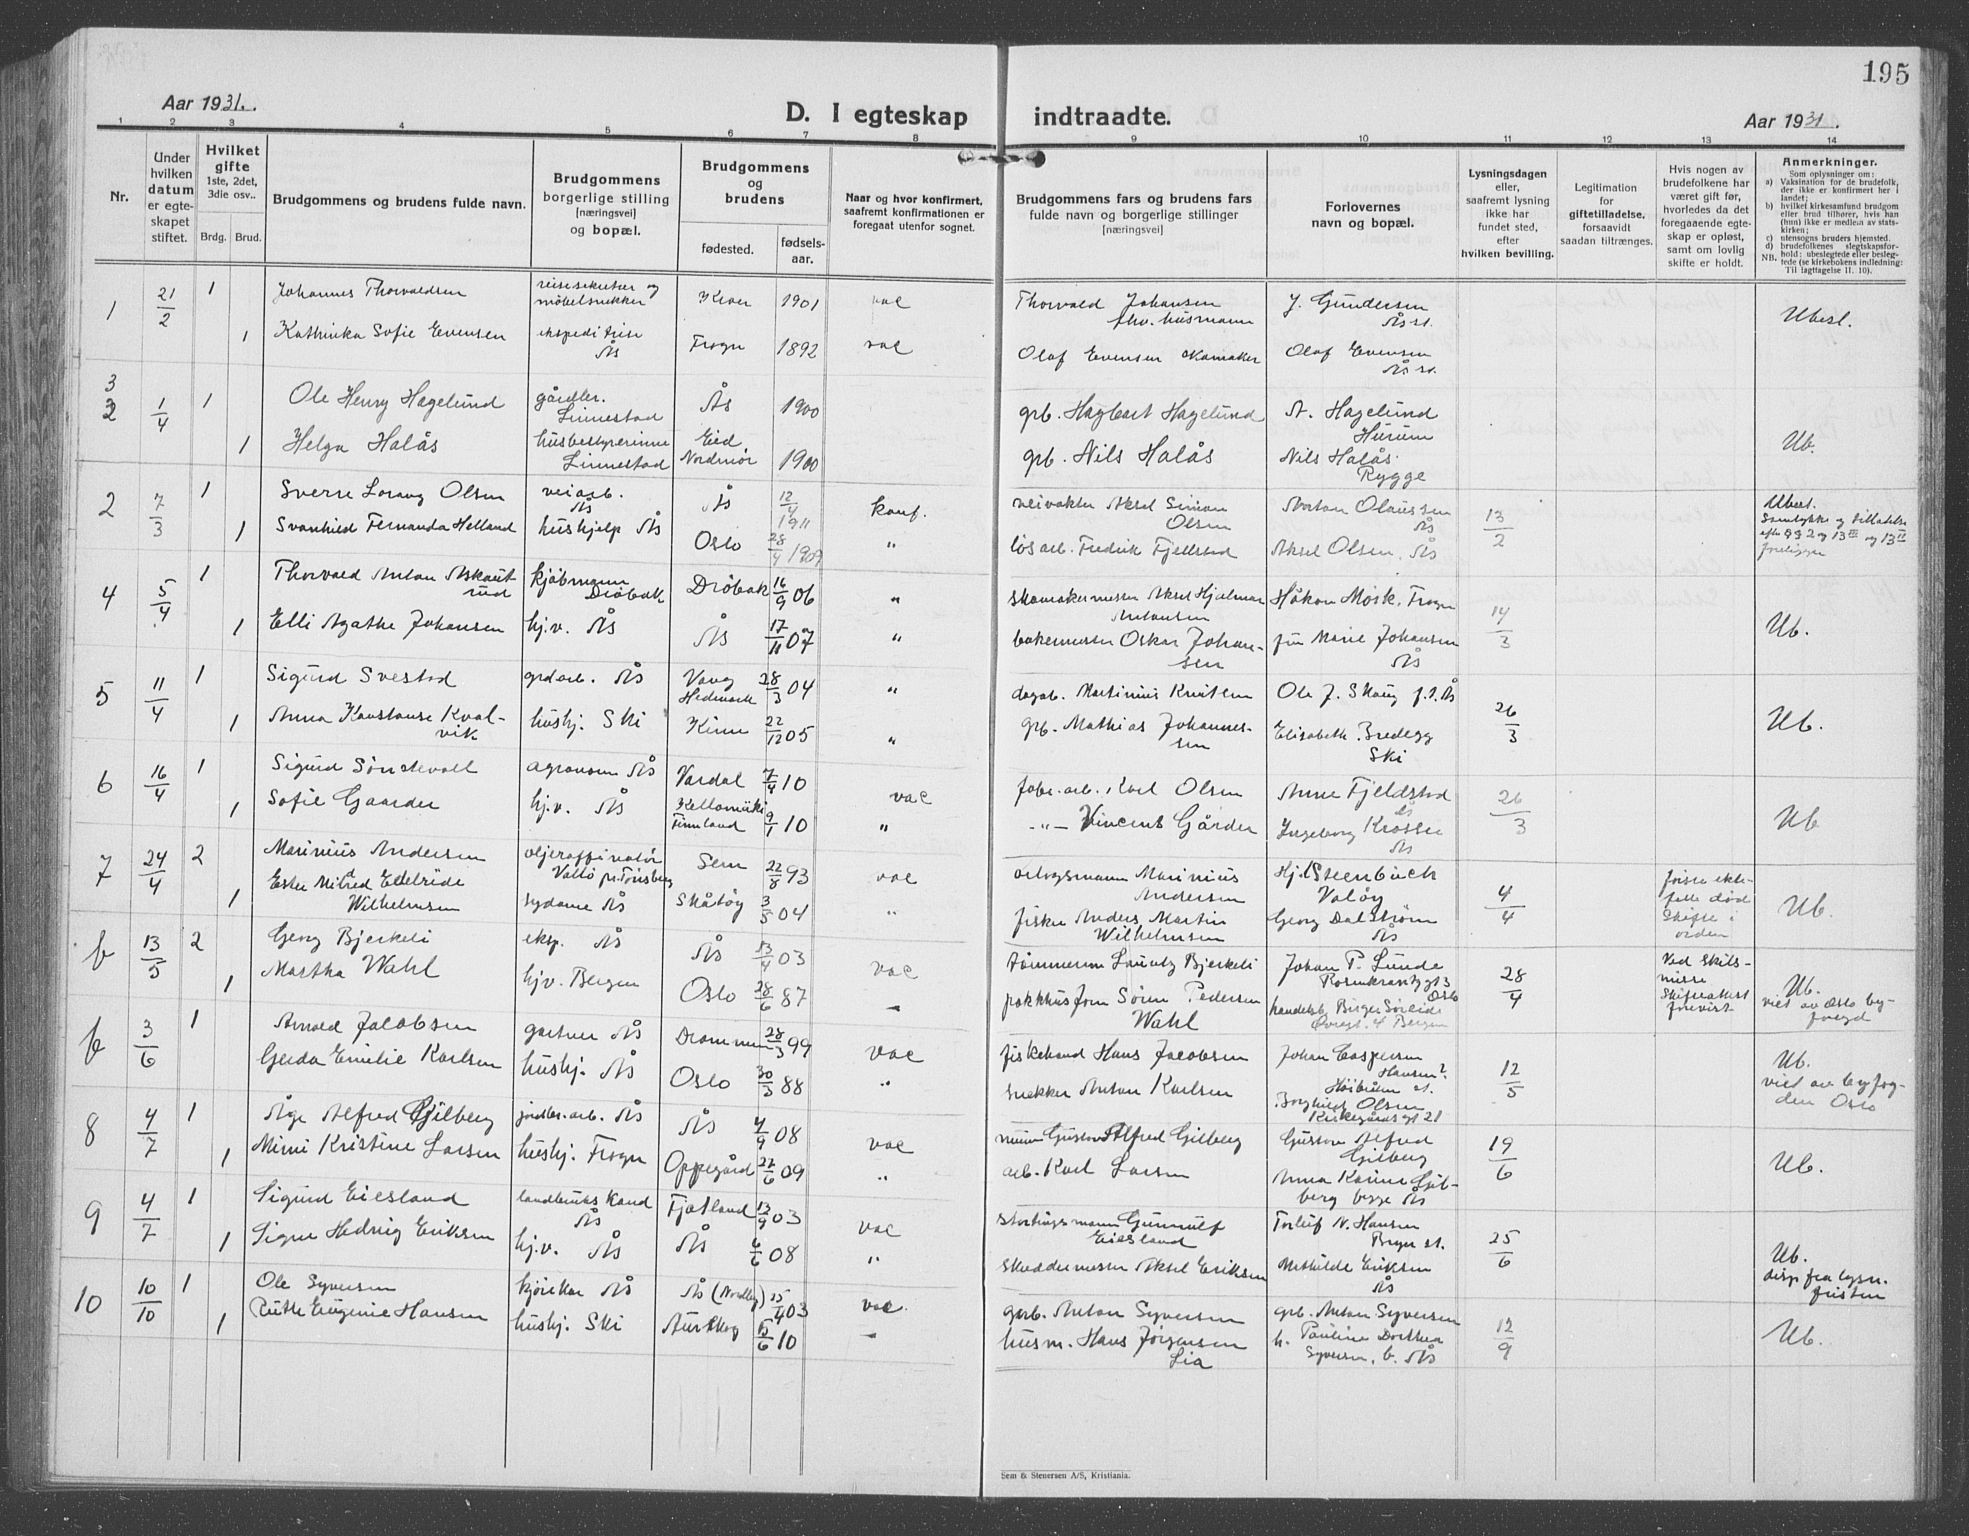 195
Aar 1931.
D. I egteskap indtraadte.
Aar 1931.
1 2 3 4 5 6 7 8 9 10 11 12 13 14
Nr.
Under hvilken datum er egteskapet stiftet.
Hvilket gifte 1ste, 2det, 3die osv..
Brdg. Brud.
Brudgommens og brudens fulde navn.
Brudgommens borgerlige stilling [næringsvei] og bopæl.
Brudgommens og brudens
fødested. fødselsaar.
Naar og hvor konfirmert, saafremt konfirmationen er foregaat utenfor sognet.
Brudgommens fars og brudens fars fulde navn og borgerlige stillinger [næringsvei]
Forlovernes navn og bopæl.
Lysningsdagen eller, saafremt lysning ikke har fundet sted, efter hvilken bevilling.
Legitimation for giftetilladelse, forsaavidt saadan tiltrænges.
Hvis nogen av brudefolkene har været gift før, hvorledes da det foregaaende egteskap er opløst, samt om lovlig skifte er holdt.
Anmerkninger.
Som oplysninger om:
a) Vaksination for de brudefolk, der ikke er konfirmert her i landet;
b) hvilket kirkesamfund brudgom eller brud tilhører, hvis han (hun) ikke er medlem av statskirken;
c) utensogns bruders hjemsted.
d) brudefolkenes slegtskapsforhold: ubeslegtede eller beslegtede (se kirkebokens indledning: Til iagttagelse II. 10).
NB.
1 21/2 1 Johannes Thorvaldsen reisesekretær og møbelsnekker Kroer 1901 vac Thorvald Johansen fhv. husmann J. Gundersen Ås st. Ubesl.
1 Kathinka Sofie Evensen ekspeditrise Ås Frogn 1892 vac Olaf Evensen skomaker Olaf Evensen Ås st.
3 2 1/4 1 Ole Henry Hagelund gårdbr. Linnestad Ås 1900 grb. Hagbart Hagelund N. Hagelund Hurum
1 Helga Halås husbestyrerinne Linnestad Eid Nordmør 1900 grb. Nils Halås Nils Halås Rygge Ub.
2 7/3 1 Sverre Olsen veiarb. Ås Ås 12/4 1911 konf. veivokter Aksel Simon Olsen Anton Olaussen Ås 13/2 Ubesl. Samtykke og tillatelse efter §§ 2 og 13 III og 13 II foreligger
1 Svanhild Fernanda Helland hushjelp Ås Oslo 28/4 1909 " løsarb. Fredrik Fjellstad Aksel Olsen, Ås
4 5/4 1 Thorvald Anton Askautrud kjøbmann Drøbak Drøbak 16/9 06 " skomakermester Aksel Hjalmar Antonsen Håkon Mosk, Frogn 14/3 Ub.
1 Elli Agathe Johansen hj.v. Ås Ås 17/11 07 " bakermester Oskar Johansen fru Marie Johansen Ås
5 11/4 1 Sigurd Svestad grdarb. Ås Vang Hedmark 28/3 04 " dagab. Martinius Knutsen Ole J. Skaug p.t. Ås 26/3 Ub.
1 Anna Konstanse Kvalvik hushj. Ski Kinn 22/12 05 " grb. Mathias Johannessen Elisabeth Bredegg Ski
6 16/4 1 Sigurd Sønstevoll agronom Ås Vardal 7/4 10 vac fabr.arb. Karl Olsen Anne Fjeldstad Ås 26/3 Ub
1 Sofie Gaarder hj.v. Ås Kellomäki Finnland 9/1 10 " -"- Vincent Gårder Ingeborg Krosser Ås
7 24/4 2 Marinius Andersen oljeraffinatør Vallø pr. Tønsberg Sem 22/8 93 vac orlogsmann Marinius Andersen Hj. Steenbuch Valøy 4/4 første ektefelle død skifte i orden Ub.
1 Ester Milred Edelride Wilhelmsen sydame Ås Skåtøy 3/5 04 " fisker Anders Martin Wilhelmsen Georg Dalstrøm Ås
b 13/5 2 Georg Bjerkeli eksp. Ås Ås 13/4 03 vac tømmerm. Lauritz Bjerkeli Johan P. Lunde Rosenkrantzgt 3 Oslo 28/4 Ved skilsmisse Skifteattest forevist Ub. viet av Oslo byfogd
1 Martha Wahl hjv. Bergen Oslo 28/6 87 " pakkhusform Søren Pedersen Wahl handelsb. Birger Sørleide Øvregt. 4 Bergen
b 3/6 1 Arnold Jacobsen gartner Ås Drammen 28/3 99 vac fiskehand Hans Jacobsen Johan Caspersen Hansen? Høibråten st. 12/5 Ub. viet av byfogden Oslo
Gerda Emilie Karlsen hushj. Ås Oslo 30/3 88 " snekker Anton Karlsen Borghild Olsen Kirkegårdsgt 21
8 4/7 1 Åge Alfred Gjilberg jordbr.arb. Ås Ås 4/9 08 vac murer Gustav Alfred Gjilberg Gustav Alfred Gjilberg 19/6 Ub.
1 Mimi Kristine Larsen hushj. Frogn Oppegård 27/6 09 " arb. Karl Larsen Anna Karine Gjilberg begge Ås
9 4/7 1 Sigurd Eiesland landbruks kand Ås Fjotland 13/9 03 vac stortingsmann Gunnulf Eiesland Torleif N. Hansen Bryn st. 25/6 Ub. disp fra lysn. fristen
1 Signe Hedvig Eriksen hj.v. Ås Ås 6/6 08 " skreddermester Aksel Eriksen Mathilde Eriksen Ås
10 10/10 1 Ole Syversen kjørekar Ås Ås (Nordby) 15/4 03 vac. grb. Anton Syversen grb. Anton Syversen 12/9 Ub.
1 Ruth Eugenie Hansen hushj. Ski Aurskog 15/6 10 " husm. Hans Jørgensen Lia h. Pauline Dorthea Syversen, b. Ås
Sem & Stenersen A/S, Kristiania.